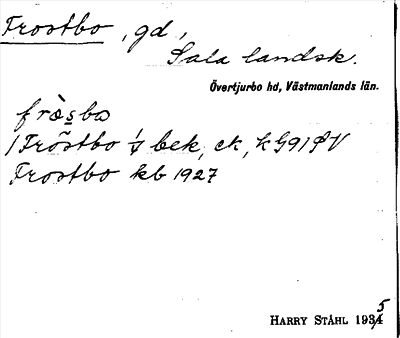 Frostbo, gd,
Sala landsk.
Övertjurbo hd, Västmanlands län.
fròsbo
Frõstbo bek, ck, KG91
Frostbo kb 1927
HARRY STÅHL 1935